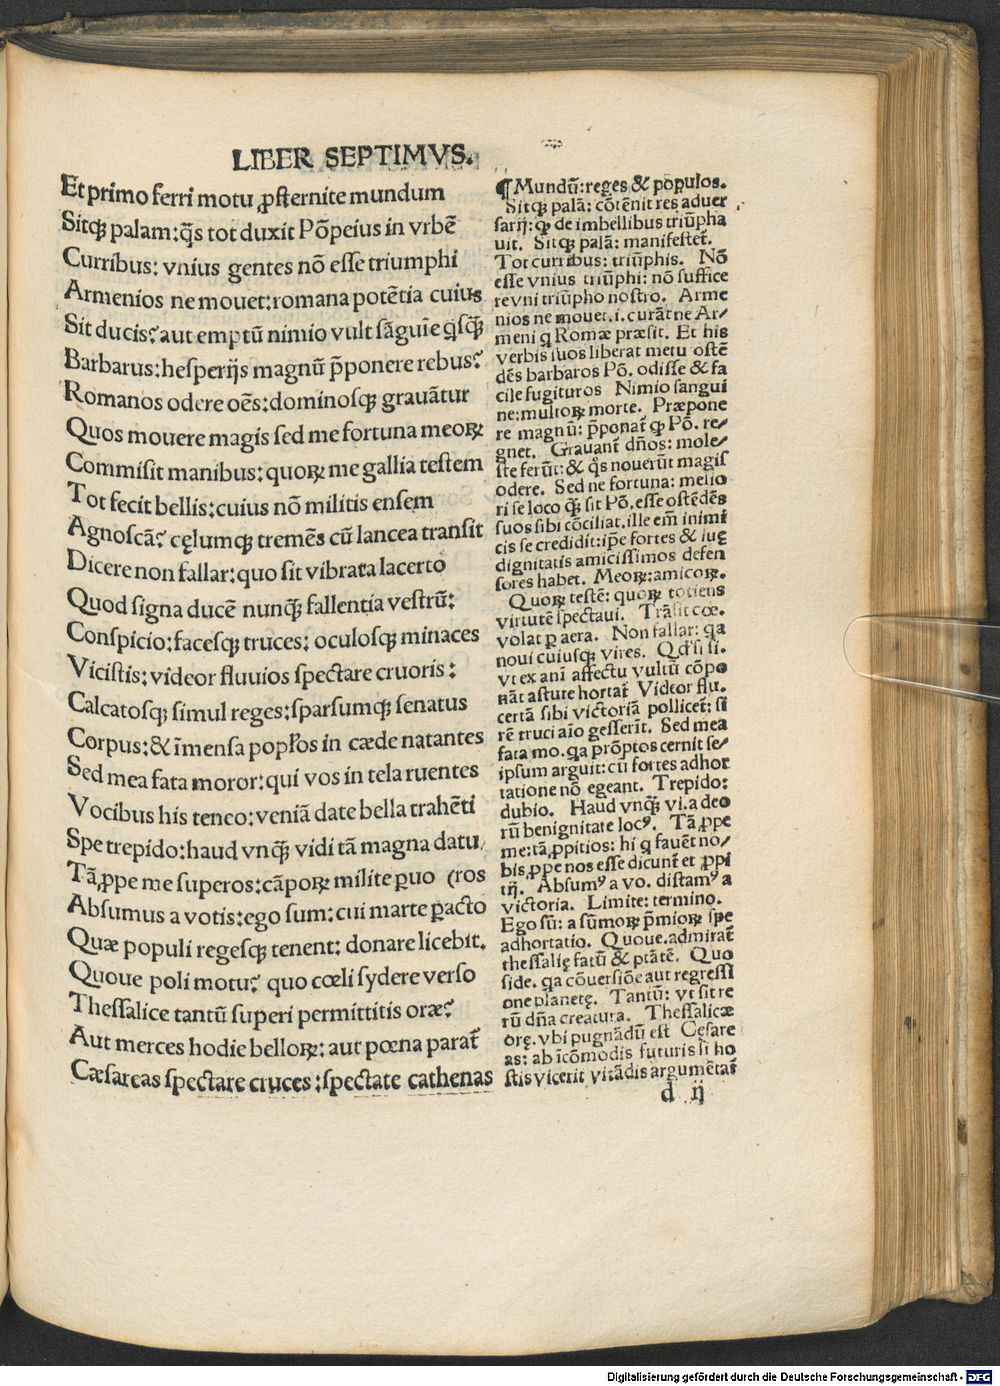 LIBER SEPTIMVS.
Et primo ferri motu ꝓsternite mundum
Sitqꝫ palam:q̃s tot duxit Põpeius in vrbẽ
Curribus: vnius gentes nõ esse triumphi
Armenios ne mouet:romana potẽtia cuius
Sit ducis? aut emptũ nimio vult sãguĩe q̃sqꝫ
Barbarus:hesperijs magnũ p̃ponere rebus?
Romanos odere oẽs:dominosqꝫ grauãtur
Quos mouere magis sed me fortuna meoꝝ
Commisit manibus:quoꝝ me gallia testem
Tot fecit bellis:cuius nõ militis ensem
Agnoscã? cęlumqꝫ tremẽs cũ lancea transit
Dicere non fallar:quo sit vibrata lacerto
Quod signa ducẽ nunqꝫ̃ fallentia vestrũ:
Conspicio:facesqꝫ truces: oculosqꝫ minaces
Vicistis:videor fluuios spectare cruoris:
Calcatosqꝫ simul reges:sparsumqꝫ senatus
Corpus:& ĩmensa popl̃os in cæde natantes
Sed mea fata moror:qui vos in tela ruentes
Vocibus his teneo:veniã date bella trahẽti
Spe trepido:haud vnqꝫ̃ vidi tã magna datu/
Tã ꝓpe me superos:cãpoꝝ milite ꝑuo (ros
Absumus a votis:ego sum:cui marte ꝑacto
Quæ populi regesqꝫ tenent: donare licebit.
Quoue poli motu? quo cœli sydere verso
Thessalice tantũ superi permittitis oræ?
Aut merces hodie belloꝝ: aut pœna parat̃
Cæsareas spectare cruces:spectate cathenas
¶Mundũ:reges & populos.
Sitqꝫ palã: cõtẽnit res aduer
sarij: ꝙ de imbellibus triũpha
uit. Sitqꝫ palã: manifestet̃.
Tot curribus: triũphis. Nõ
esse vnius triũphi: nõ suffice
re vni triũpho nostro. Arme
nios ne mouet.i.curãt ne Ar/
meni q̃ Romæ præsit. Et his
verbis suos liberat metu ostẽ
dẽs barbaros Põ. odisse & fa
cile fugituros Nimio sangui
ne:multoꝝ morte. Præpone
re magnũ: p̃ponat̃ ꝙ Põ. re/
gnet. Grauant̃ dños: mole/
ste ferũt:& q̃s nouerũt magis
odere. Sed ne fortuna: melio
ri se loco qꝫ̃ sit Põ.esse ostẽdẽs
suos sibi cõciliat.ille em̃ inimi
cis se credidit:ip̃e fortes & suę
dignitatis amicissimos defen
sores habet. Meoꝝ:amicoꝝ.
Quoꝝ testẽ: quoꝝ totiens
virtutẽ spectaui. Trãsit cœ.
volat ꝑ aera. Non fallar: q̃a
noui cuiusqꝫ vires. Qđ si si.
vt ex ani affectu vultũ cõpo
nãt asture hortat̃ Videor flu.
certã sibi victoriã pollicet̃: si
rẽ truci aĩo gesserĩt. Sed mea
fata mo. q̃a prõptos cernit se/
ipsum arguit:cũ fortes adhor
tatione nõ egeant. Trepido:
dubio. Haud vnqꝫ̃ vi.a deo
rũ benignitate locꝰ. Tã ꝓpe
me:tã ꝓpitios: hi q̃ fauẽt no/
bis ꝓpe nos esse dicunt̃ et ꝓpi
tij. Absumꝰ a vo. distamꝰ a
victoria. Limite: termino.
Ego sũ: a sũmoꝝ p̃mioꝝ spe
adhortatio. Quoue.admirat̃
thessalię fatũ & ptãtẽ. Quo
side. q̃a cõuersiõe aut regressi
one planetę. Tantũ: vt sit re
rũ dña creatura. Thessalicæ
orę. vbi pugnãdũ est Cęsare
as: ab ĩcõmodis futuris si ho
stis vicerit vitãdis argumẽtat̃
d ij
Digitalisierung gefördert durch die Deutsche Forschungsgemeinschaft - DFG